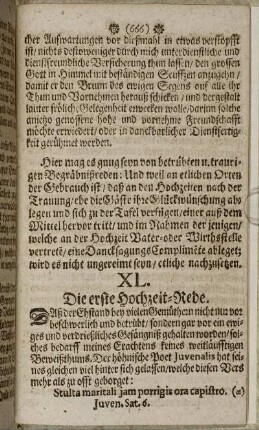 (666)
cher Auffwartungen vor dießmahl in etwas verstopfft
ist / nichts destoweniger durch mich unterdienstliche und
dienstfreundliche Versicherung thun lassen / den grossen
Gott in Himmel mit beständigen Seufftzen anzugehn /
damit er den Brunn des ewigen Segens auf alle ihr
Thun und Vornehmen herauß schicken / und dergestalt
lauter frölich. Gelegenheit erwecken wolle / darinn solche
anietzo genossene hohe und vornehme Freundschafft
möchte erwiedert / oder in danckbarlicher Dienstfertig-
keit gerühmet werden.
Hier mag es gnug seyn von betrübten u. trauri-
gen Begräbnißreden: Und weil an etlichen Orten
der Gebrauch ist / daß an den Hochzeiten nach der
Trauung / ehe die Gäste ihre Glückwünschung ab-
legen und sich zu der Tafel verfügen / einer auß dem
Mittel hervor tritt / und im Nahmen der jenigen /
welche an der Hochzeit Vater- oder Wirthsstelle
vertrete / eine Dancksagungs Complimête ableget;
wird es nicht ungereimt seyn / etliche nachzusetzen.
XL.
Die erste Hochzeit-Rede.
DAß der Ehstand bey vielen Gemüthern nicht nur vor
beschwerlich und betrübt / sondern gar vor ein ewi-
ges und verdrießliches Gefängniß gehalten worden / sol-
ches bedarff meines Erachtens keines weitläufftigen
Beweisthums. Der höhnische Poet Juvenalis hat sei-
nes gleichen viel hinter sich gelassen / welche diesen Vers
mehr als zu offt geborget:
Stulta maritali jam porrigis ora capistro. (a)
Juven. Sat. 6.